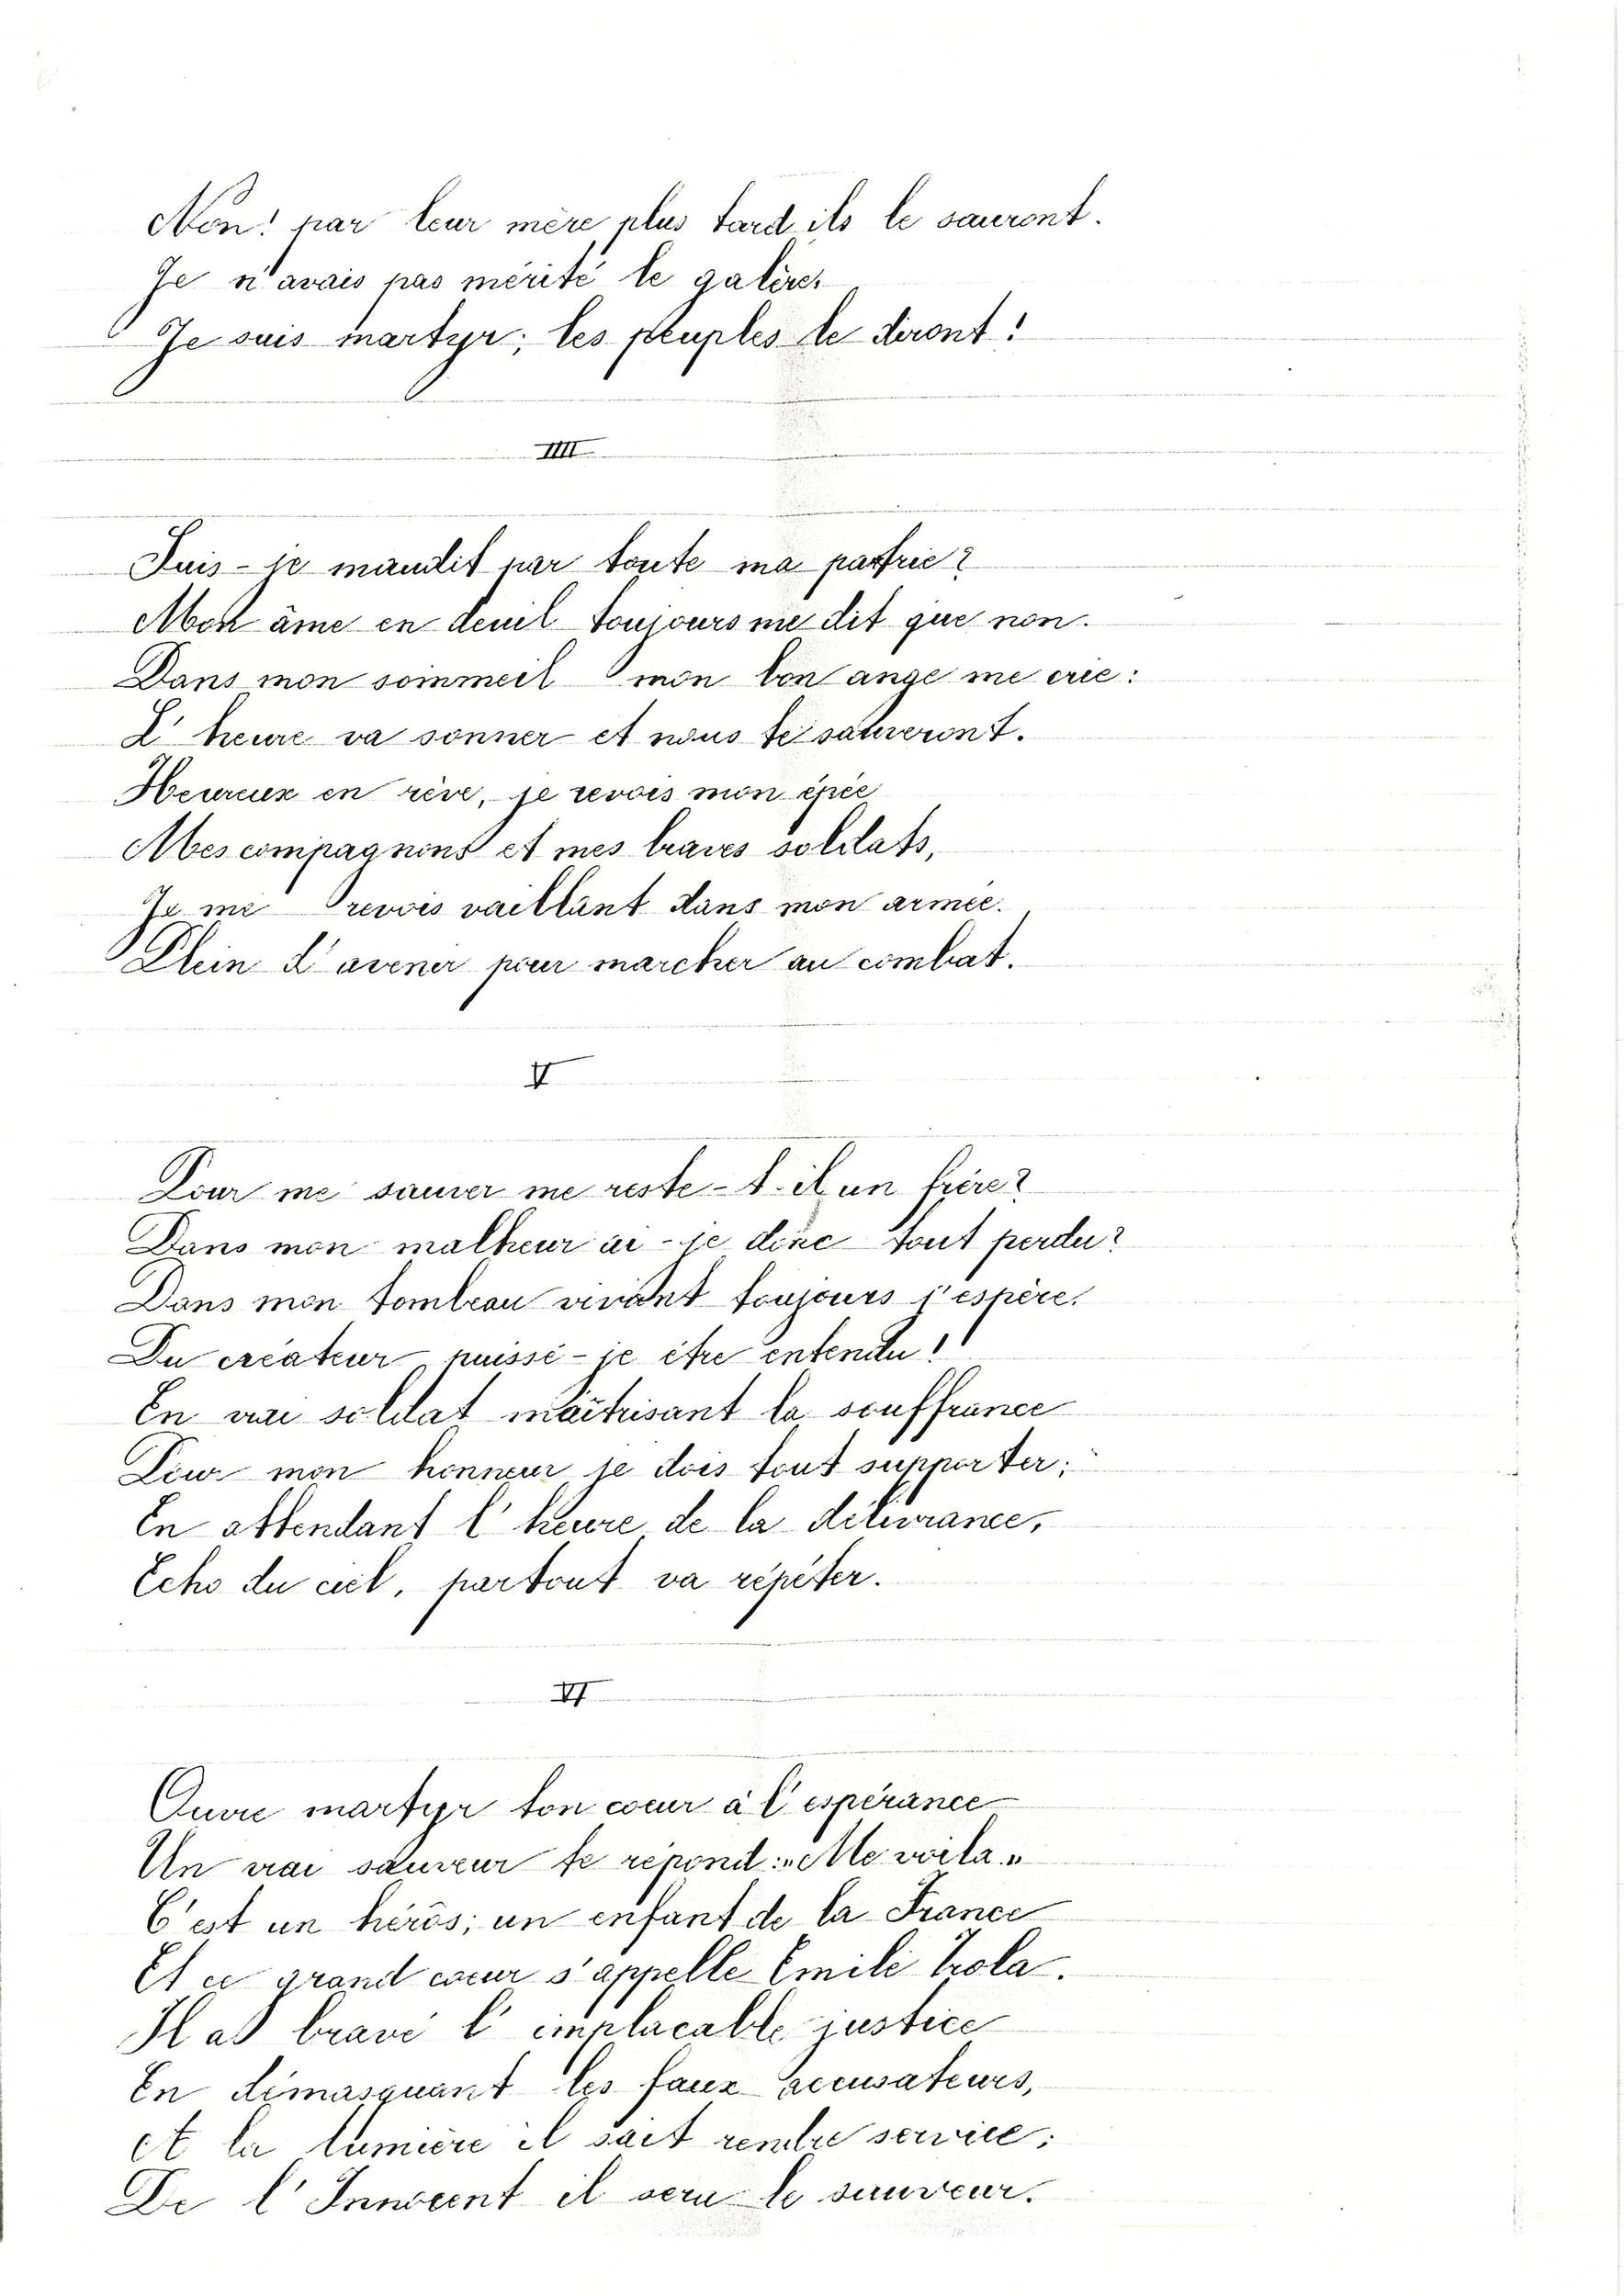 Non! par leur mère plus tard ils le sauront.
Je n'avais pas mérité le galère,
Je suis martyr; les peuples le diront!
IIII
Suis-je maudit par toute ma patrie?
Mon âme en deuil toujours me dit que non.
Dans mon sommeil mon bon ange me crie:
L'heure va sonner et nous te sauveront.
Heureux en rêve, je revois mon épée
Mes compagnons et mes braves soldats,
Je me revois vaillant dans mon armée.
Plein d'avenir pour marcher au combat.
V
Pour me sauver me reste-t-il un frère?
Dans mon malheur ai-je donc tout perdu?
Dans mon tombeau vivant toujours j'espère.
Du créateur puissé-je être entendu!
En vrai soldat maîtrisant la souffrance
Pour mon honneur je dois tout supporter;
En attendant l'heure de la délivrance,
Echo du ciel, partout va répéter.
VI
Ouvre martyr ton coeur à l'espérance
Un vrai sauveur te répond: "Me voila"
C'est un héros; un enfant de la France
Et ce grand coeur s'appelle Emile Zola.
Il as bravé l'implacable justice
En démasquant les faux accusateurs,
et la lumière il sait rendre service;
De l'Innocent il sera le sauveur.